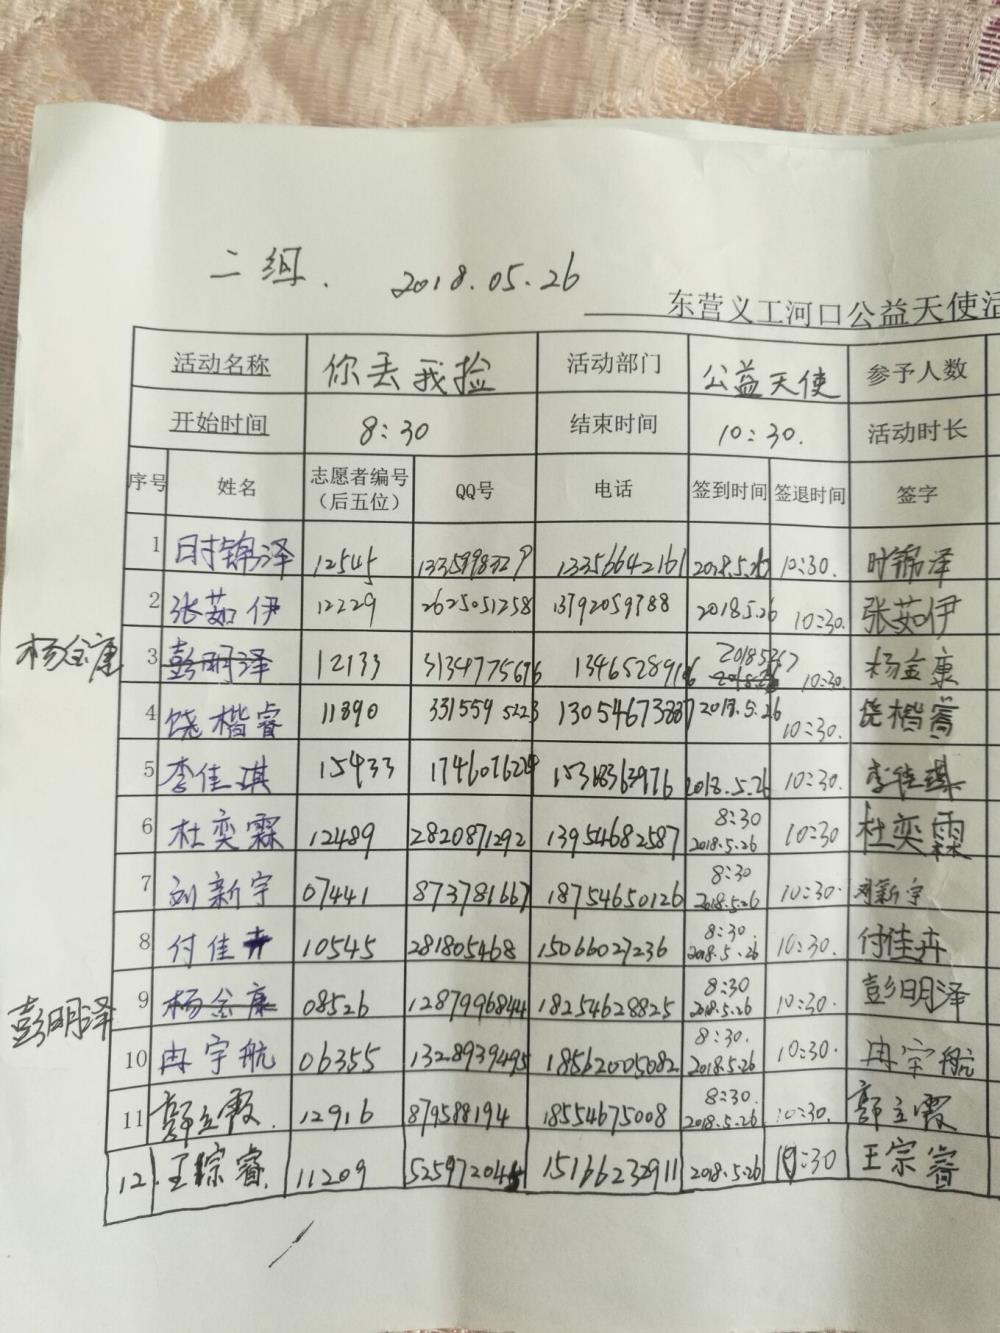 二组. 2018.05.26
东营义工河口公益天使活
活动名称 你丢我捡 活动部门 公益天使 参予人数
开始时间 8:30 结束时间 10:30. 活动时长
序号 姓名 志愿者编号（后五位） QQ号 电话 签到时间 签退时间 签字
1 时锦泽 12545 13356642161 2018.5.26 10:30. 时锦泽
2 张茹伊 12229 2625051258 2018.5.26 10:30. 张茹伊
杨金康 3 彭明泽 12133 10:30. 杨金康
4 饶楷睿 11890 2018.5.26 10:30. 饶楷睿
5 李佳琪 15433 2018.5.26 10:30. 李佳琪
6 杜奕霖 12489 2820871292 13954682587 8:30 2018.5.26 10:30 杜奕霖
7 刘新宇 07441 873781667 18754650126 8:30 2018.5.26 10:30. 刘新宇
8 付佳卉 10545 281805468 15066027236 8:30. 2018.5.26 10:30. 付佳卉
彭明泽 9 杨金康 08526 18254628825 8:30 2018.5.26 10:30. 彭明泽
10 冉宇航 06355 1328939495 18562005082 8:30. 2018.5.26 10:30. 冉宇航
11 郭立霞. 12916 879588194 18554675008 8:30. 2018.5.26 10:30. 郭立霞
12. 王宗睿. 11209 2018.5.26 10:30 王宗睿